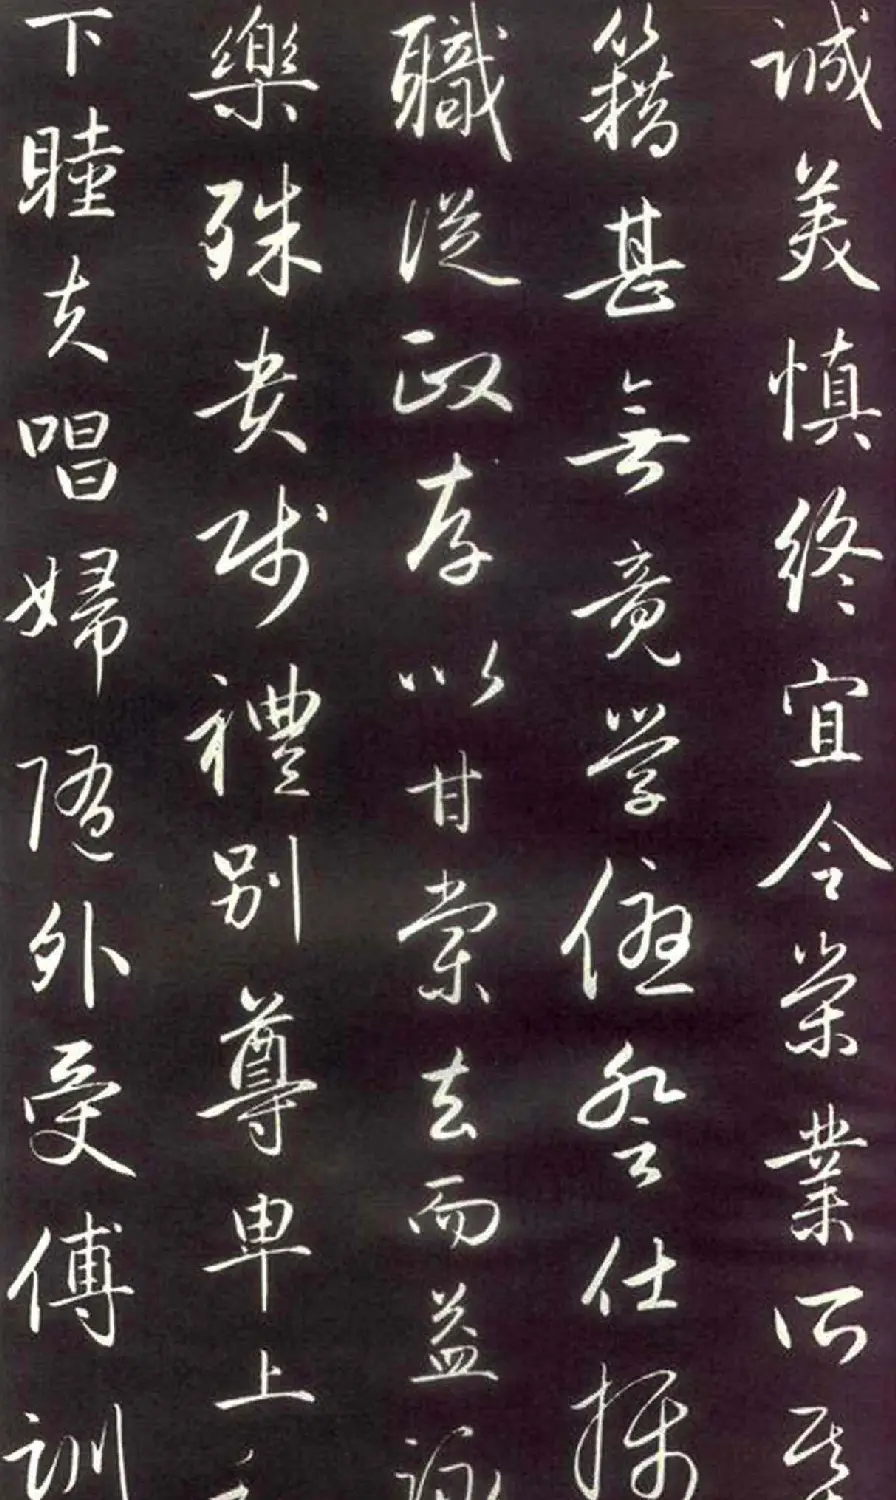 誠美慎終宜令榮業所基
籍甚無竟學優登仕攝
職從政存以甘棠去而益詠
樂殊貴賤禮別尊卑上
下睦夫唱婦隨外受傅訓